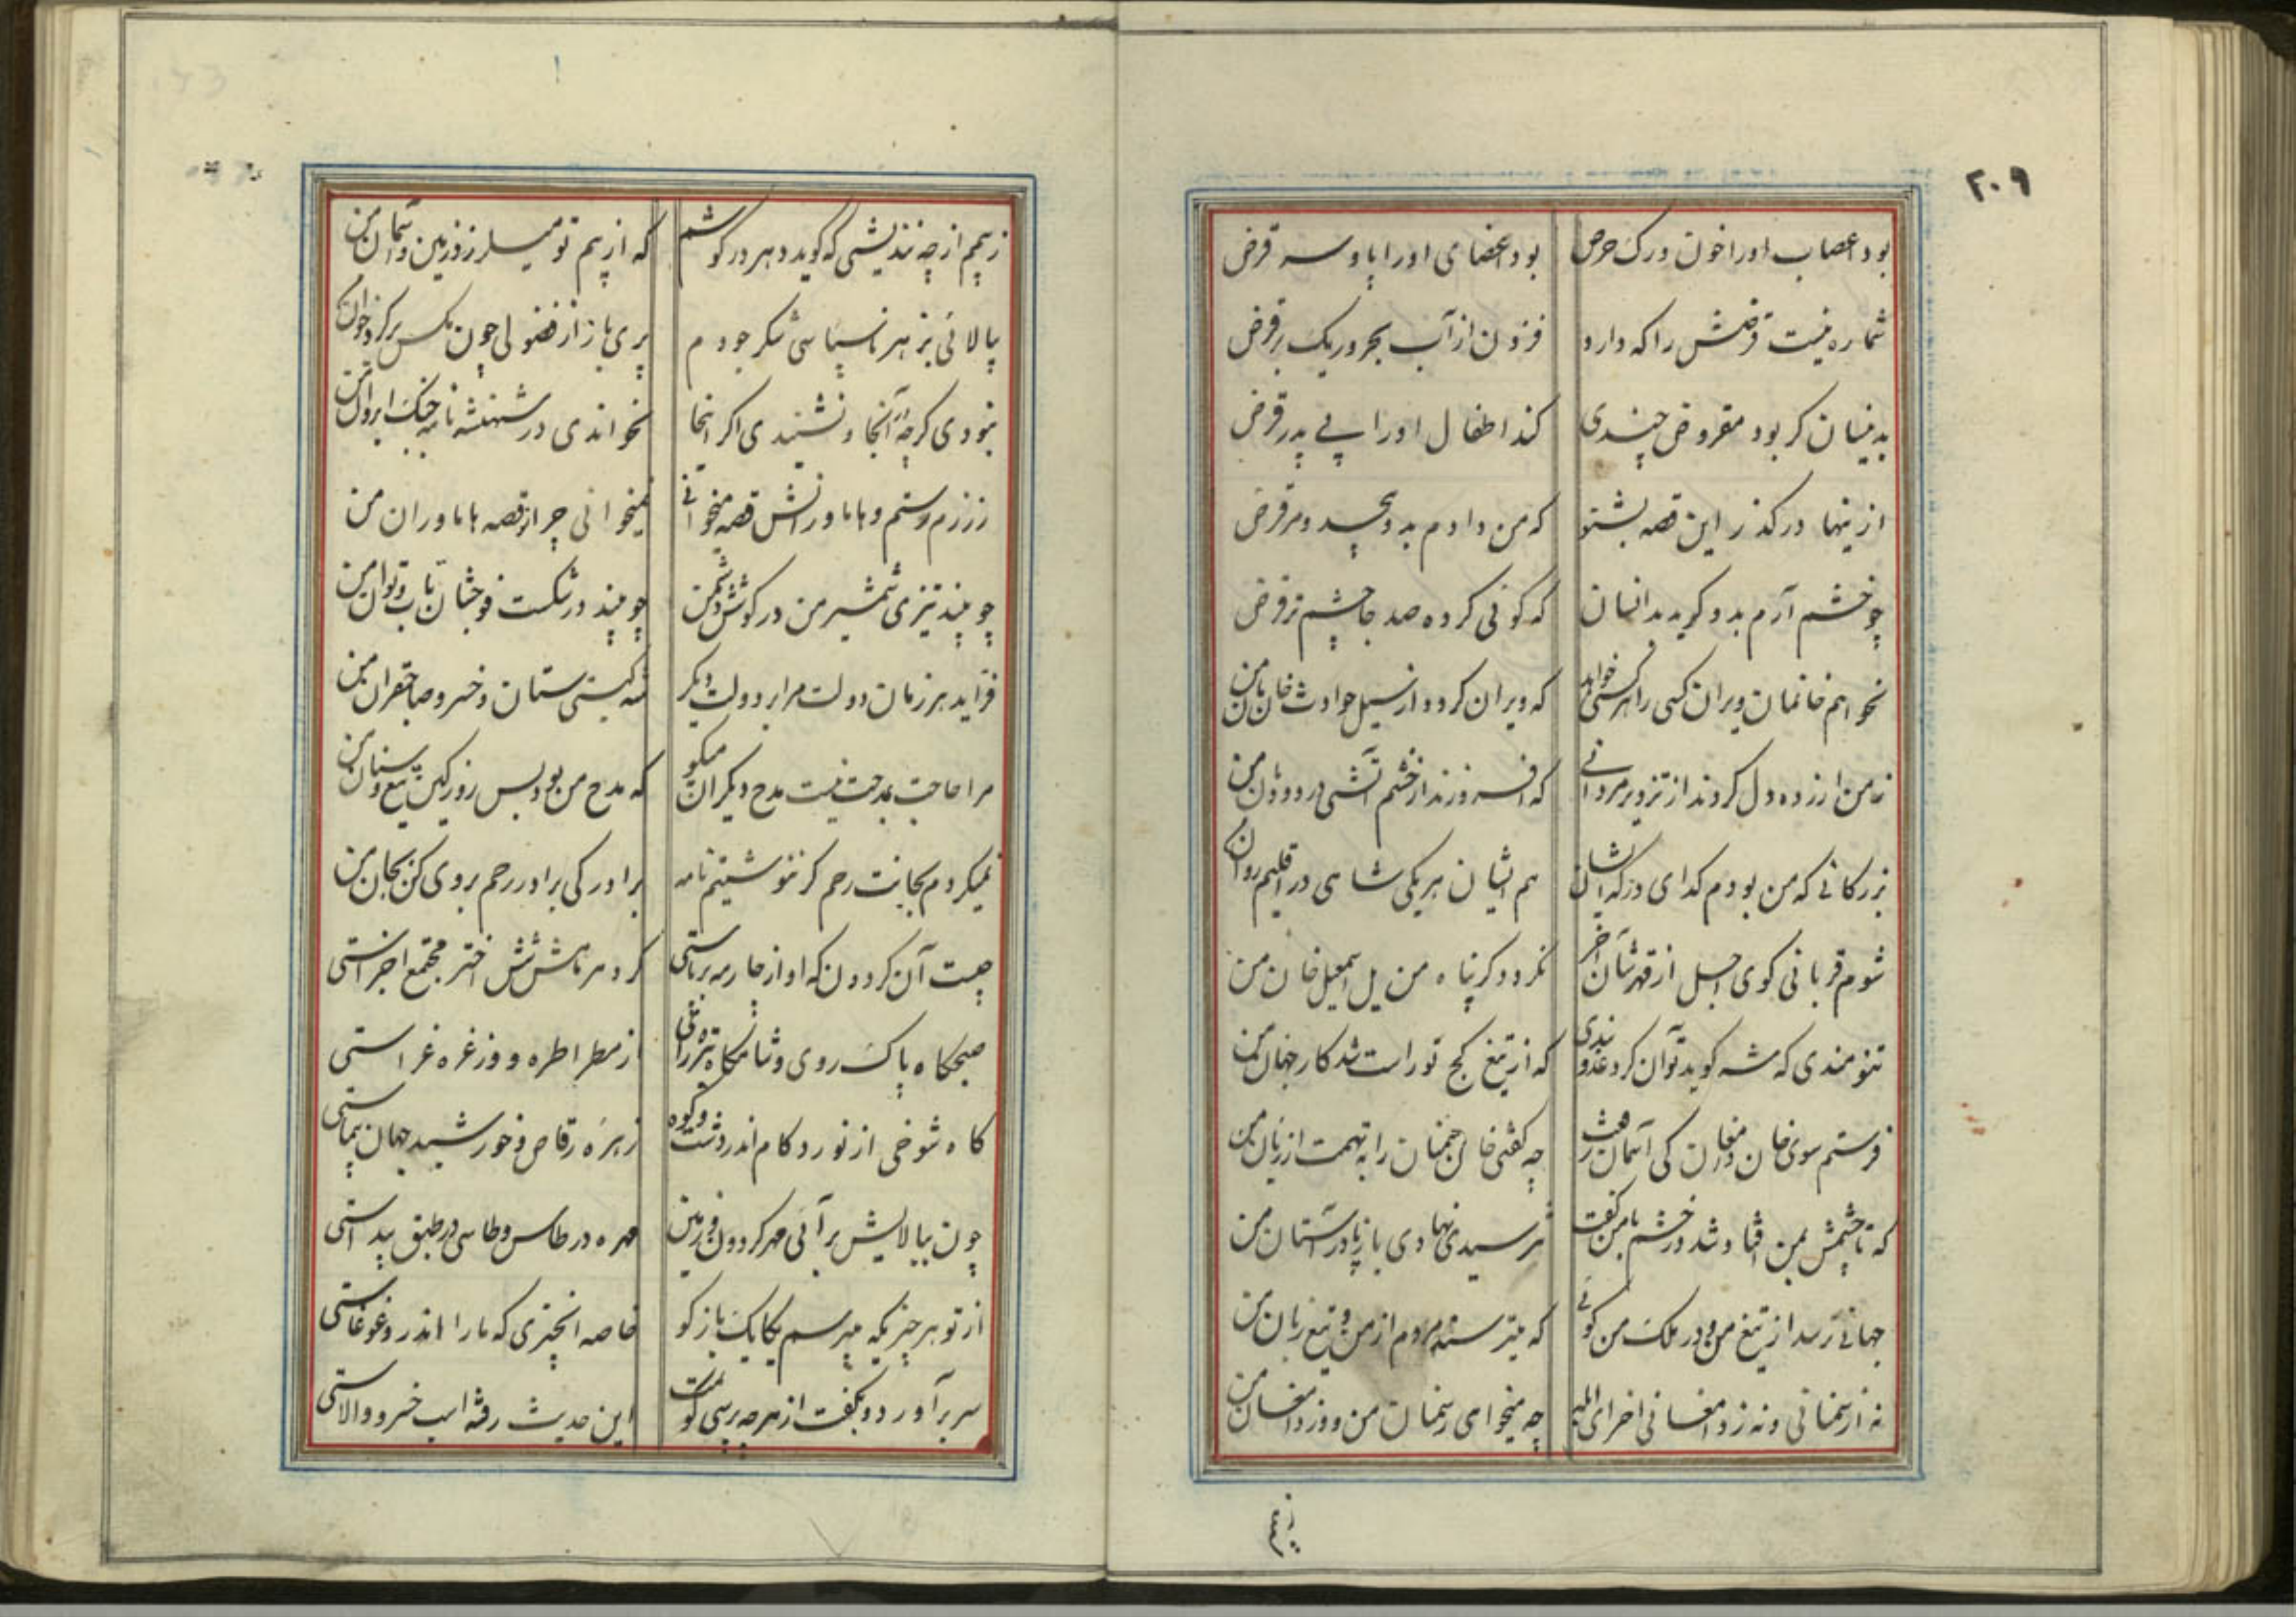 ۲۰۹
بود اعصاب اورا خون ورک حرص بود اعضای اورا پا و سر قرض
شماره نیست قرضش را که دارد فزون از آب بحر و ریک بر قرض
بدینسان کر بود مقروض چندی کند اطفال اورا پی پدر قرض
ازینها درکذر این قصه بشنو که من دادم بدو قرض
چو خشم آرم بدو کوید بدانسان که کوئی کرده صد جا چشم تر قرض
نخواهم خانمان ویران کسی را هر کسی خواهد که ویران کردد از سیل حوادث خانمان من
زمن ازرده دل کردند از تزویر مردانی که افروزند از خشم آتشی در دودمان من
بزرکانی که من بودم کدای درکه ایشان هم ایشان هریکی شاهی در اقلیم روان من
شوم قربانی کوی اجل از قهرشان آخر نکردد کر پناه من یل اسمعیل خان من
تنومندی که شه کوید توان کرد عدو بندی که از تیغ کج تو راست شد کار جهان من
فرستم سوی خان دامغان کی آسمان رفعت چه کفتی خان سمنان را به تهمت از زبان من
که تا چشمش بمن افتاد و شد در خشم با من کفت نترسیدی نهادی باز پا در آستان من
جهانی ترسد از تیغ من و در ملک من کوئی که میترسند مردم از من و تیغ زبان من
نه از سمنانی و نه ز دامغانی اخر ای ابله چه میخواهی ز سمنان من و وز دامغان من
ز بیم
ز بیم از چه نندیشی که کوید دهر در کوشم که از بیم تو میلرزد زمین و آسمان من
پالائی بزهر ناسپاسی شکر جودم پری باز از فضولی چون مکس بر کرد خوان من
نبودی کرچه آنجا و نشنیدی اکر انجا نخواندی در شهنشه نامه جنک ایروان من
ز رزم رستم و هاماورانش قصه میخوانی نمیخوانی چرا از قصه هاماوران من
چو بیند تیزی شمشیر من در کوشش دشمن چو بیند در شکست فوجشان تاب و توان من
فزاید هر زمان دولت مرا بر دولت دیکر شه کیتی ستان و خسرو صاحبقران من
مرا حاجت بمدحت نیست مدح دیکران میکو که مدح من بود بس روز کین تیغ و سنان من
نمیکردم بجانت رحم کر ننوشتیم نامه برادر کی برادر رحم بروی کن بجان من
چیست آن کردون که او از چار مه برپاستی کرد هر ماهش شش اختر مجتمع اجزاستی
صبحکاه پاک روی و شامکاه از مطرا طره و وز غره غراستی
کاه شوخی از نورد و کام اندر دشت و کوه زهره رقاص و خورشید جهان پیماستی
چون ببالایش برآئی مهر کردون و زمین مهره در طاس و طاسی در طبق پیداستی
از تو هر چیزیکه میپرسم یکایک بازکو خاصه انچیزی که ما را اندرو غوغاستی
سر برآورد و بکفت از هرچه پرسی کویمت این حدیث رفته اسب خسرو والاستی